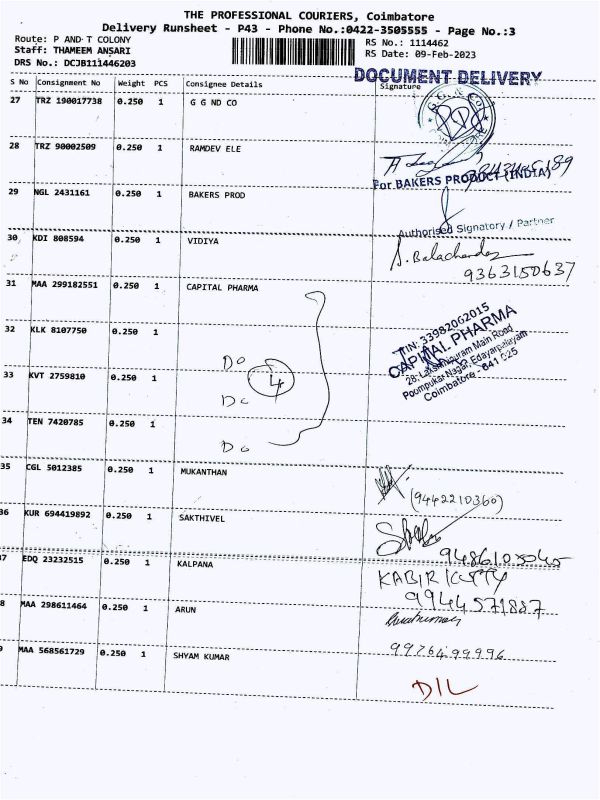 THE PROFESSIONAL COURIERS, Coimbatore
Delivery Runsheet - P43 - Phone No.:0422-3505555 - Page No.:3
Route: P AND T COLONY
Staff: THAMEEM ANSARI
DRS No.: DCJB111446203
RS No.: 1114462
RS Date: 09-Feb-2023
DOCUMENT DELIVERY
S No Consignment No Weight PCS Consignee Details Signature
27 TRZ 190017738 0.250 1 G G ND CO
28 TRZ 90002509 0.250 1 RAMDEV ELE
For BAKERS PRODUCT (INDIA)
29 NGL 2431161 0.250 1 BAKERS PROD
Authorised Signatory / Partner
30 KDI 808594 0.250 1 VIDIYA
S. Balachander
9363150637
31 MAA 299182551 0.250 1 CAPITAL PHARMA
32 KLK 8107750 0.250 1
Do
33 KVT 2759810 0.250 1
4
Do
34 TEN 7420785 0.250 1
Do
TIN: 33982062015
CAPITAL PHARMA
28, Lakshmipuram Main Road
Poompukar Nagar, Edayarpalayam
Coimbatore - 641 025
35 CGL 5012385 0.250 1 MUKANTHAN
(9442210360)
36 KUR 694419892 0.250 1 SAKTHIVEL
7 EDQ 23232515 0.250 1 KALPANA
KABIR KUTTY
9944571887
8 MAA 298611464 0.250 1 ARUN
9976499996
9 MAA 568561729 0.250 1 SHYAM KUMAR
D/L